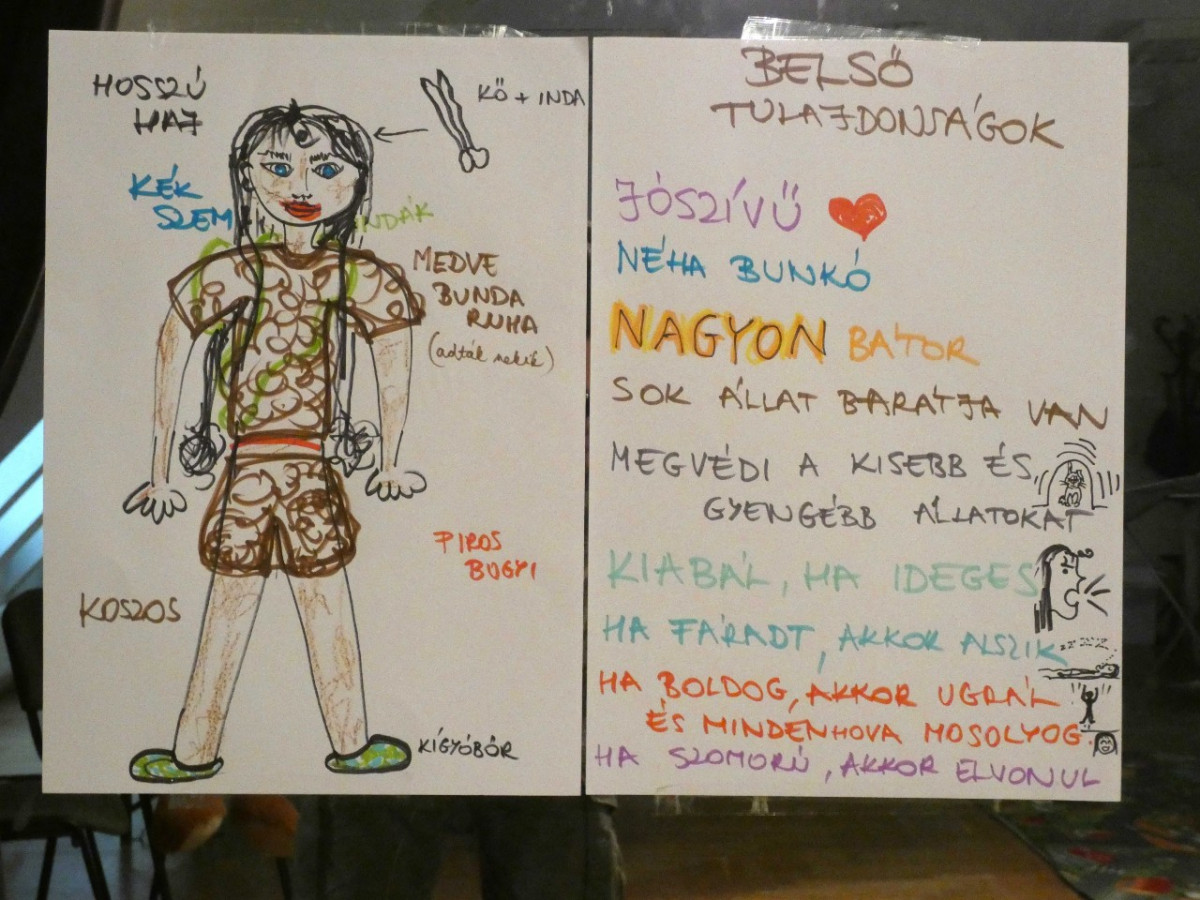 HOSSZÚ
HAJ
KŐ + INDA
KÉK
SZEM
INDÁK
MEDVE
BUNDA
RUHA
(adták nekik)
PIROS
BUGYI
KOSZOS
KÍGYÓBŐR
BELSŐ
TULAJDONSÁGOK
JÓSZÍVŰ
NÉHA BUNKÓ
NAGYON BÁTOR
SOK ÁLLAT BARÁTJA VAN
MEGVÉDI A KISEBB ÉS
GYENGÉBB ÁLLATOKAT
KIABÁL, HA IDEGES
HA FÁRADT, AKKOR ALSZIK
zz zzz
HA BOLDOG, AKKOR UGRÁL
ÉS MINDENHOVA MOSOLYOG
HA SZOMORÚ, AKKOR ELVONUL